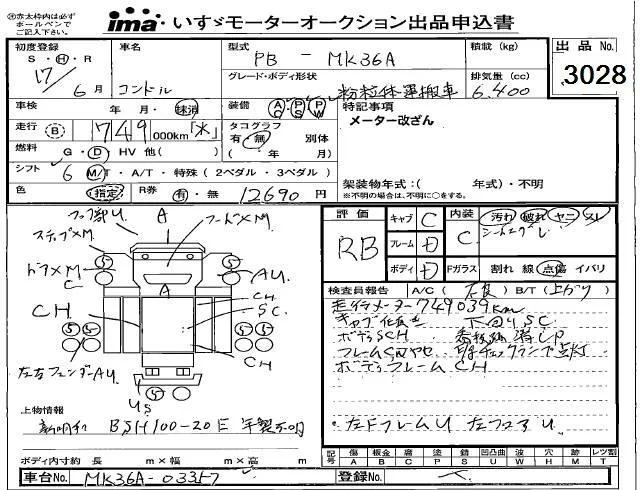 ㊟赤太枠内は必ず
ボールペンで
ご記入下さい。
ima いすゞモーターオークション出品申込書
初度登録 車名 型式 PB - MK36A 積載 (kg) 出品No.
S・H・R グレード・ボディ形状 排気量 (cc) 3028
17 6月 コンドル 粉粒体運搬車 6.400
車検 年・月・抹消 装備 AC PS PW 特記事項
メーター改ざん
走行 B 749 000km「*」 タコグラフ 有・無 別体
燃料 G・D HV 他( ) 年 / 月
シフト 6 M/T・A/T・特殊(2ペダル・3ペダル)
架装物年式:( 年式)・不明
※不明の場合は、不明に○をする。
色 指定 R券 有・無 12690 円
評価 RB キャブ C 内装 C 汚れ 破れ ヤニ スレ
フレーム D
ボディ D Fガラス 割れ 線 点傷 イバリ
フードメM
A
ステップメM
ドアメM
C
AU
CH
SC
CH
CH
左右フェンダーAU
US
検査員報告 A/C( 良) B/T(上がり)
走行メーター749039km
下回りSC
ボデーSCH
ボデーフレームCH
左ドフレームU
上物情報
新明和 BSH100-20E 年製不明
ボディ内寸約 長 m×幅 m×高 m
記号 傷 板金 腐 塗 錆 凹凸曲 波 穴 跡 レツ割
A B C P S U W H M T
車台No. MK36A-03357 登録No.